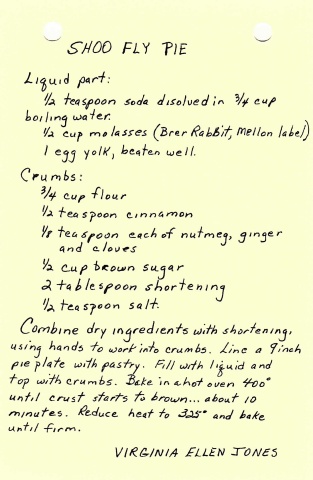 SHOO FLY PIE
Liquid part:
1/2 teaspoon soda disolved in 3/4 cup
boiling water.
1/2 cup molasses (Brer Rabbit, Mellon label)
1 egg yolk, beaten well.
Crumbs:
3/4 cup flour
1/2 teaspoon cinnamon
1/8 teaspoon each of nutmeg, ginger
and cloves
1/2 cup brown sugar
2 tablespoon shortening
1/2 teaspoon salt.
Combine dry ingredients with shortening,
using hands to work into crumbs. Line a 9inch
pie plate with pastry. Fill with liquid and
top with crumbs. Bake in a hot oven 400°
until crust starts to brown... about 10
minutes. Reduce heat to 325° and bake
until firm.
VIRGINIA ELLEN JONES